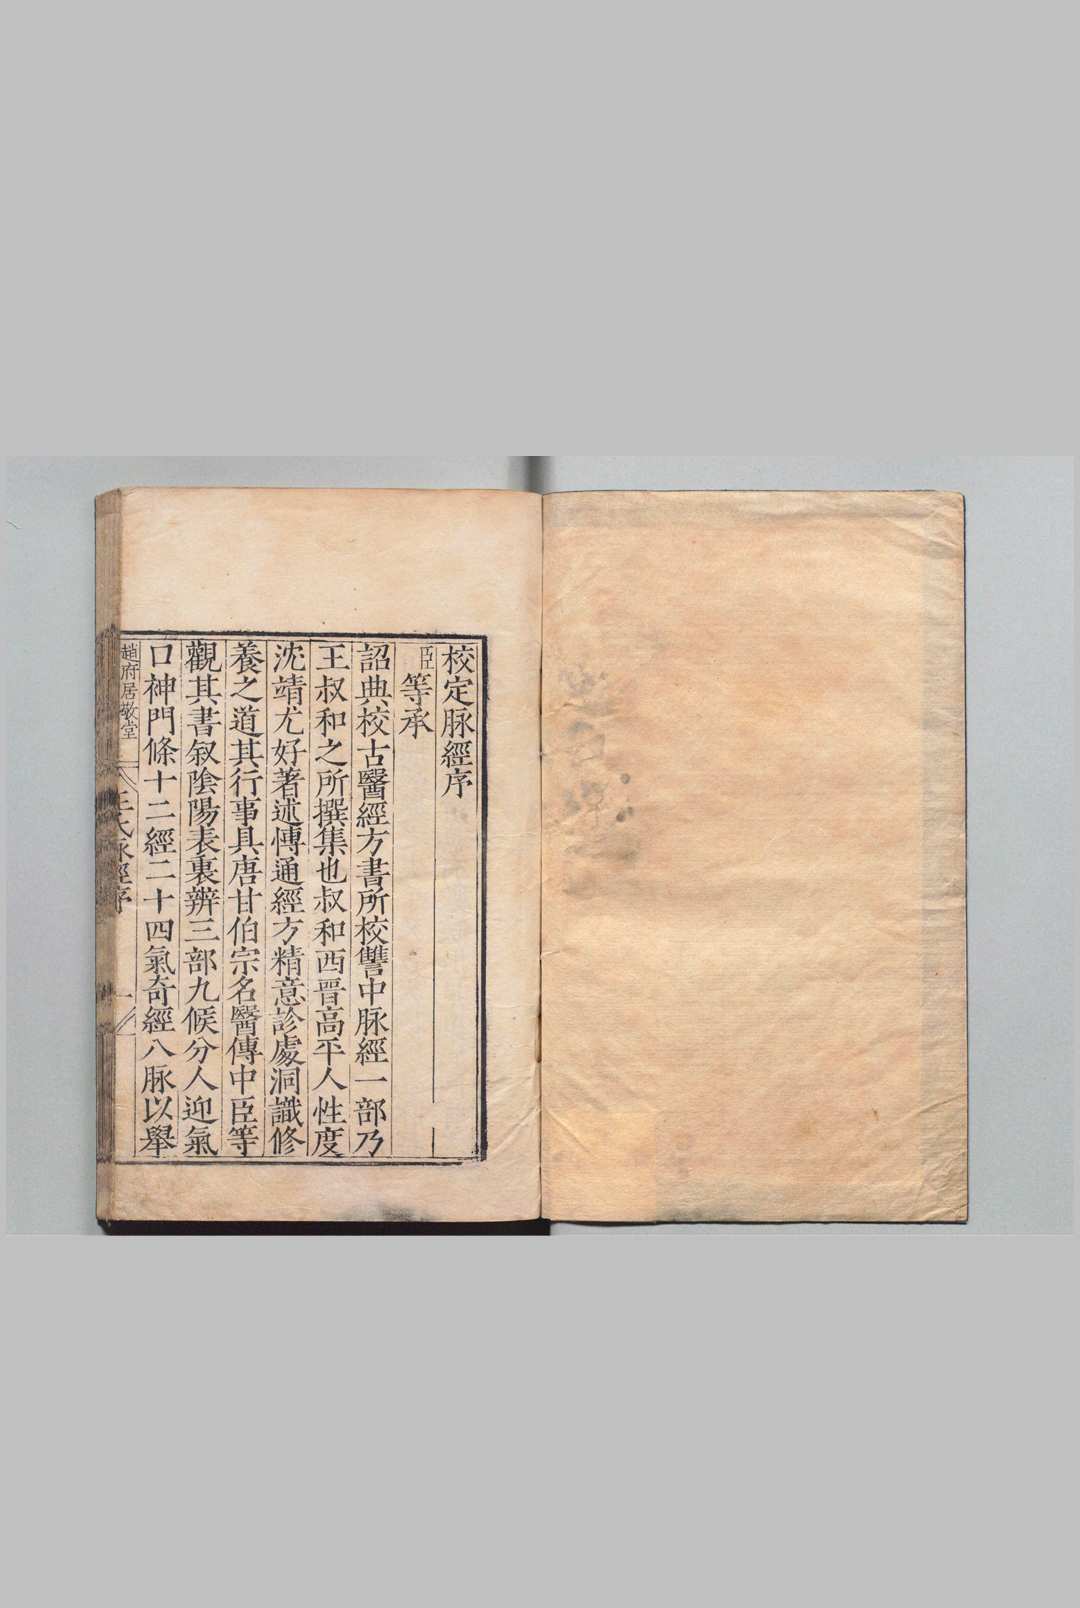 校定脉經序
臣等承
詔典校古醫經方書所校讐中脉經一部乃
王叔和之所撰集也叔和西晉高平人性度
沈靖尤好著述愽通經方精意診處洞識修
養之道其行事具唐甘伯宗名醫傳中臣等
觀其書叙隂陽表裏辨三部九候分人迎氣
口神門條十二經二十四氣奇經八脉以舉
趙府居敬堂
王氏脉經序
一